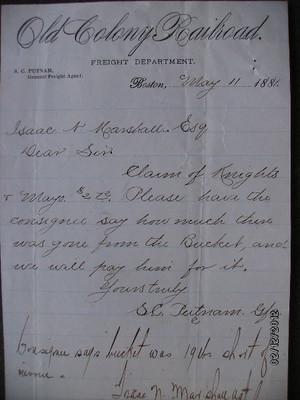 Old Colony Railroad.
FREIGHT DEPARTMENT.
S. C. PUTNAM,
General Freight Agent.
Boston, May 11 1881.
Isaac N Marshall. Esq
Dear Sir
Claim of Knights
& Mayo. Please have the
consignee say how much there
was gone from the Bucket, and
we will pay him for it.
Yours truly
S.C. Putnam. Gfa
Consignee says bucket was 19 lbs short of
Isaac N. Marshall agt
02/12/2012